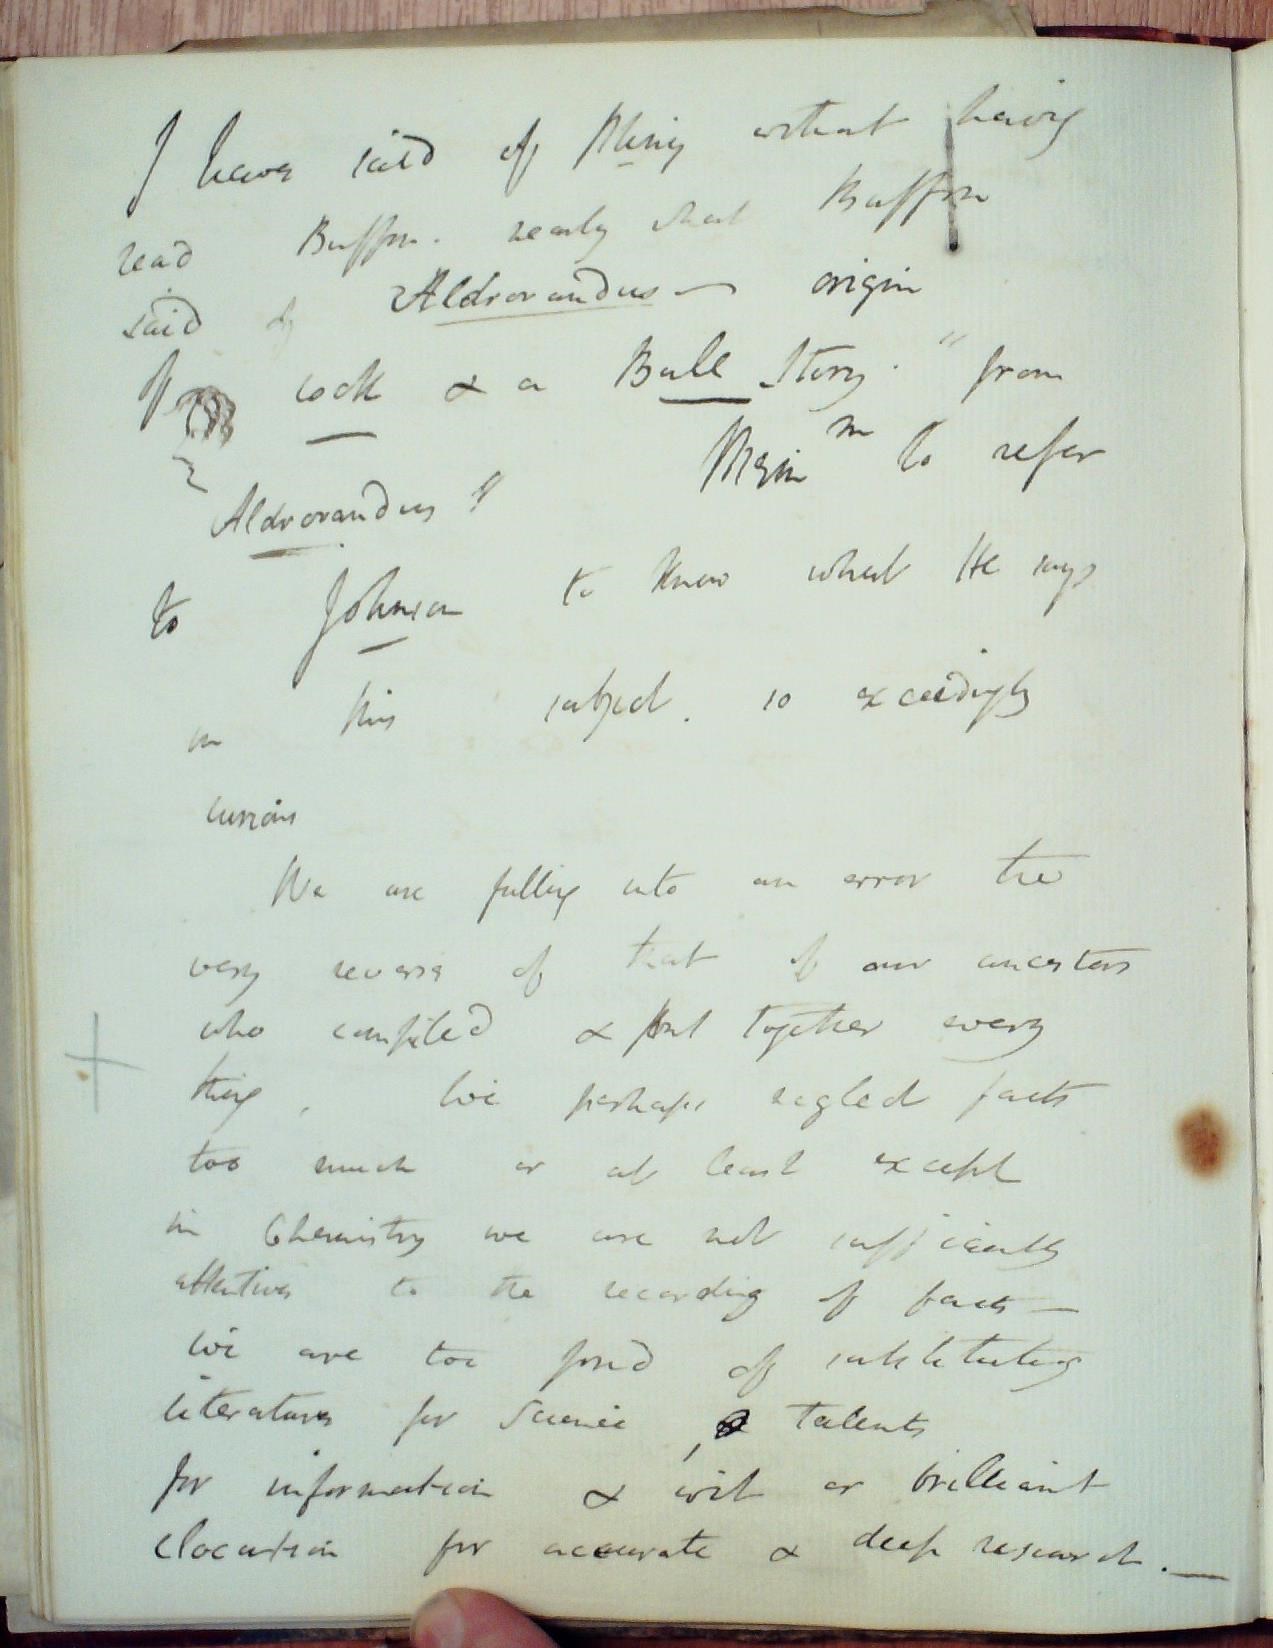 I have said of Pliny without having
read Buffon. nearly what Buffon
said of Aldrovandus — origin
of cock & a Bull Story. " from
Aldrovandus " Mem to refer
to Johnson to know what He says
on this subject. so exceedingly
curious
We are falling into an error the
very reverse of that of our ancestors
who compiled & put together every
thing, we perhaps neglect facts
too much or at least except
in Chemistry we are not sufficiently
attentive to the recording of facts —
we are too fond of substituting
literature for Science, talents
for information & wit or brilliant
elocution for accurate & deep research. —